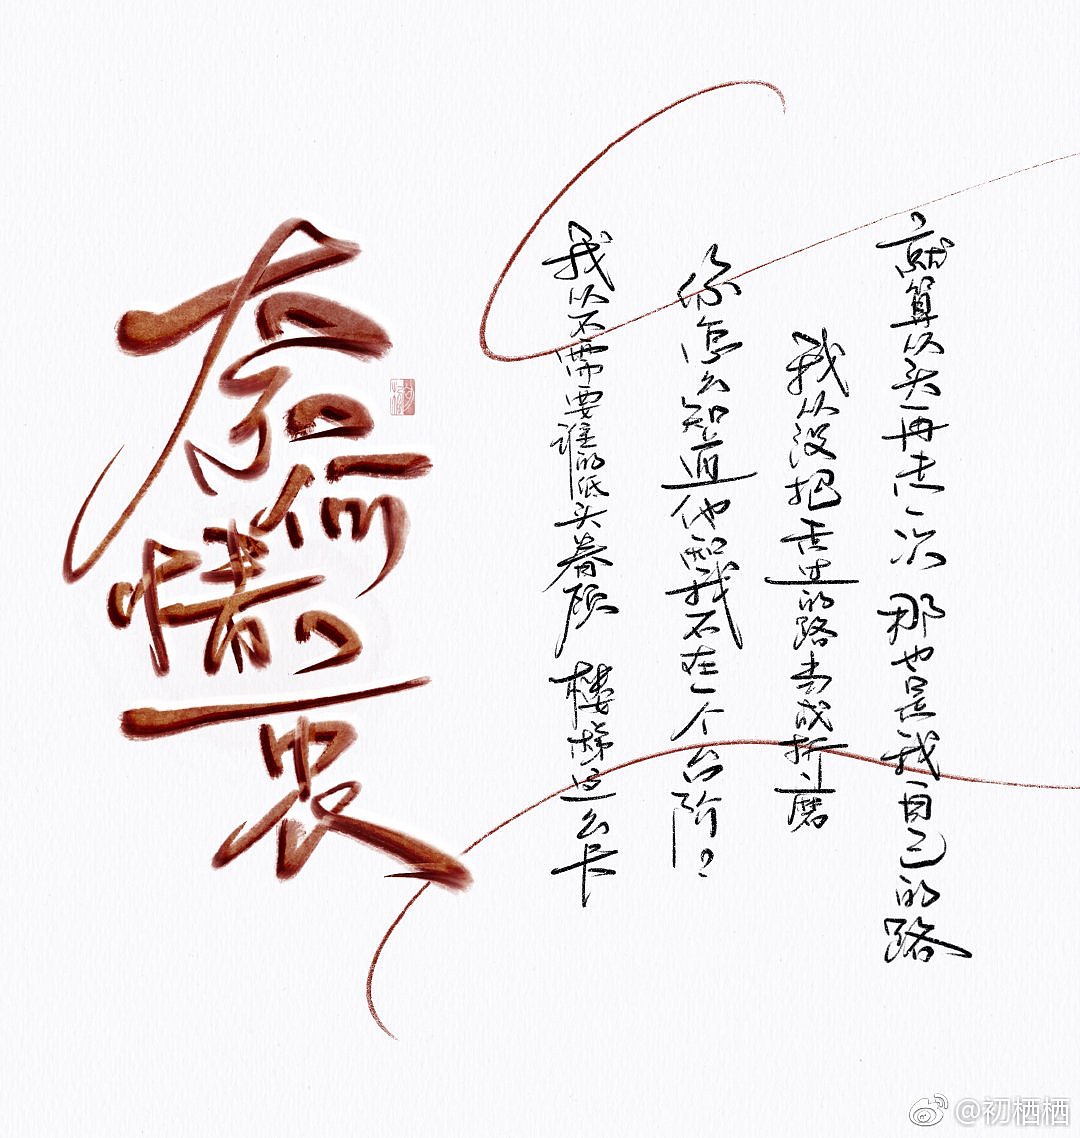 就算从头再走一次 那也是我自己的路
我从没把过的路当成折磨
你怎么知道他和我不在一个台阶？
我从不需要谁的低头眷顾 楼梯这么卡
奈何情衷
@初栖栖